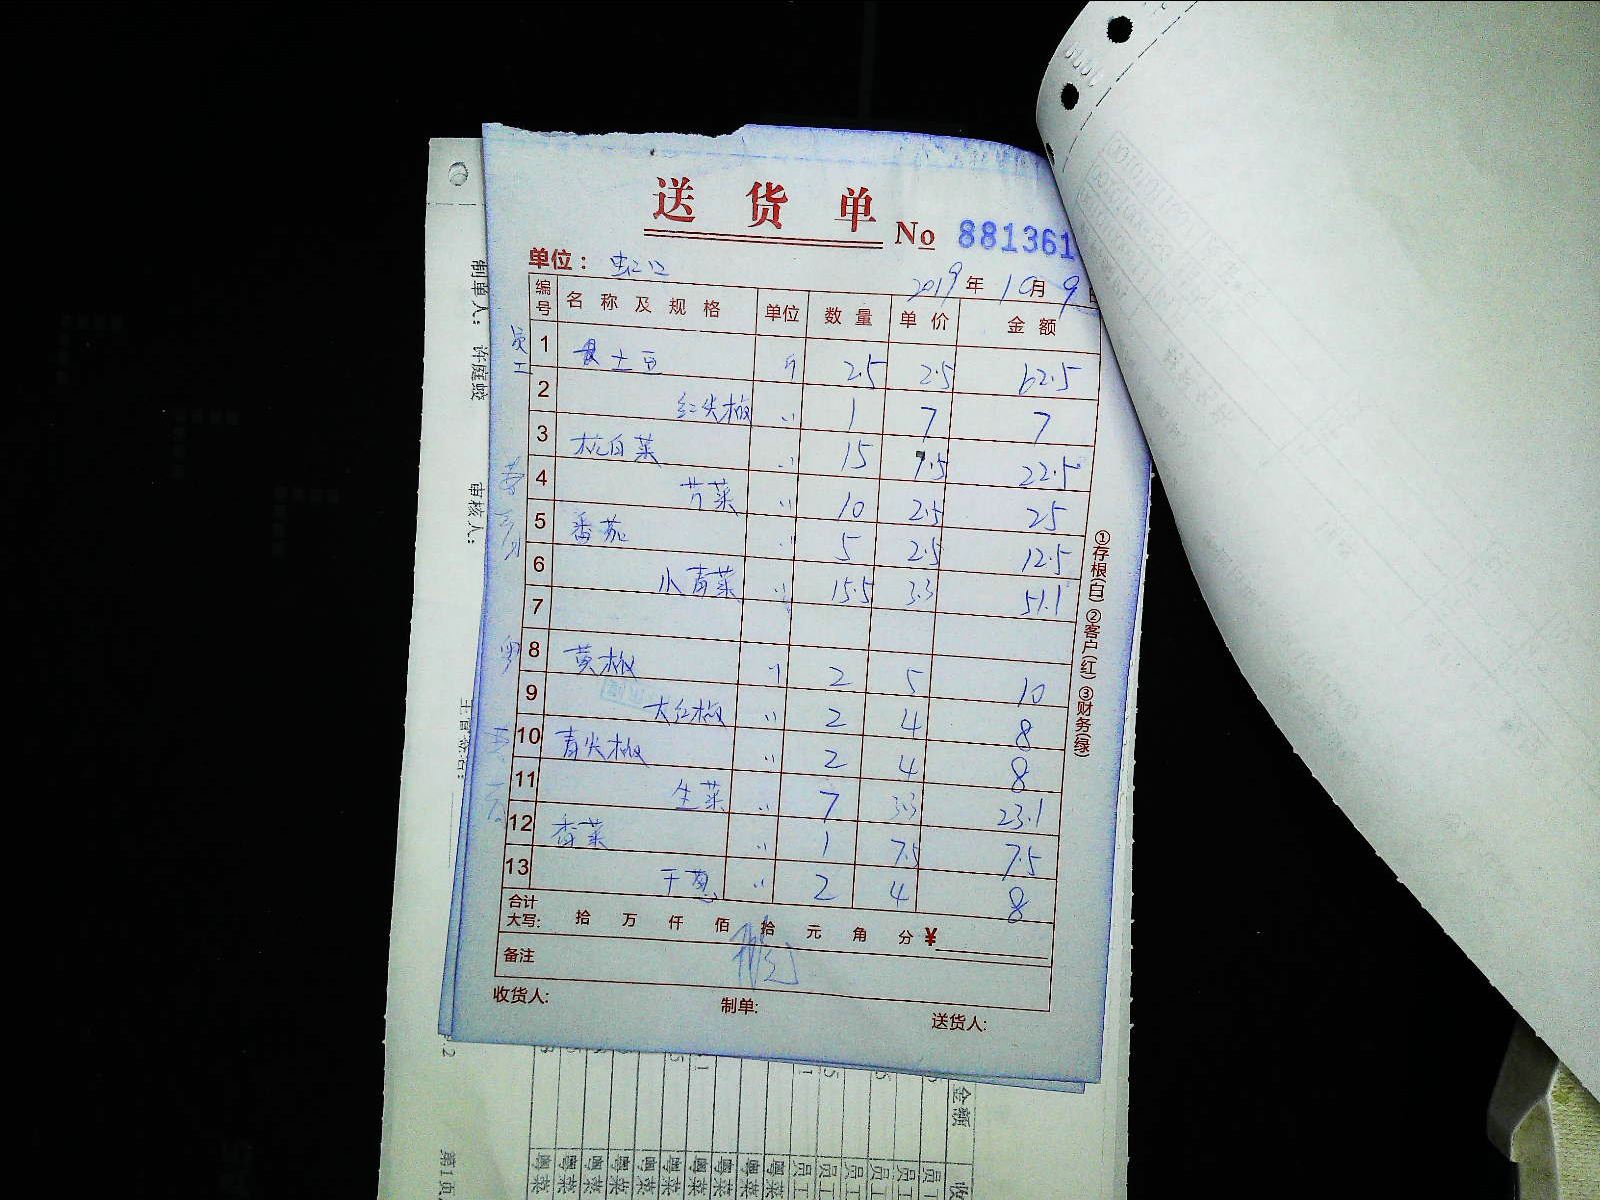 送 货 单 No 881361
单位： 虹口
2019年 10月 9日
编号 名 称 及 规 格 单位 数 量 单 价 金 额
员工
1 土豆 斤 25 2.5 62.5
2 红尖椒 〃 1 7 7
3 杭白菜 〃 15 1.5 22.5
4 芹菜 〃 10 2.5 25
5 番茄 〃 5 2.5 12.5
6 小青菜 〃 15.5 3.3 51.1
7
8 黄椒 〃 2 5 10
9 大红椒 〃 2 4 8
10 青尖椒 〃 2 4 8
11 生菜 〃 7 3.3 23.1
12 香菜 〃 1 7.5 7.5
13 干葱 〃 2 4 8
合计大写: 拾 万 仟 佰 拾 元 角 分 ¥
备注
收货人: 制单: 送货人:
①存根(白) ②客户(红) ③财务(绿)
制单人: 许庭蛟
审核人:
金额
第1页